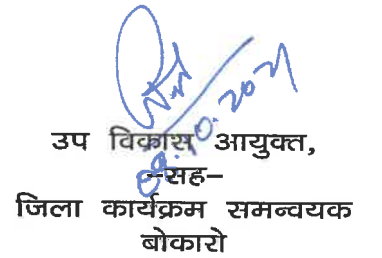 08.10.2021
उप विकास आयुक्त,
–सह–
जिला कार्यक्रम समन्वयक
बोकारो